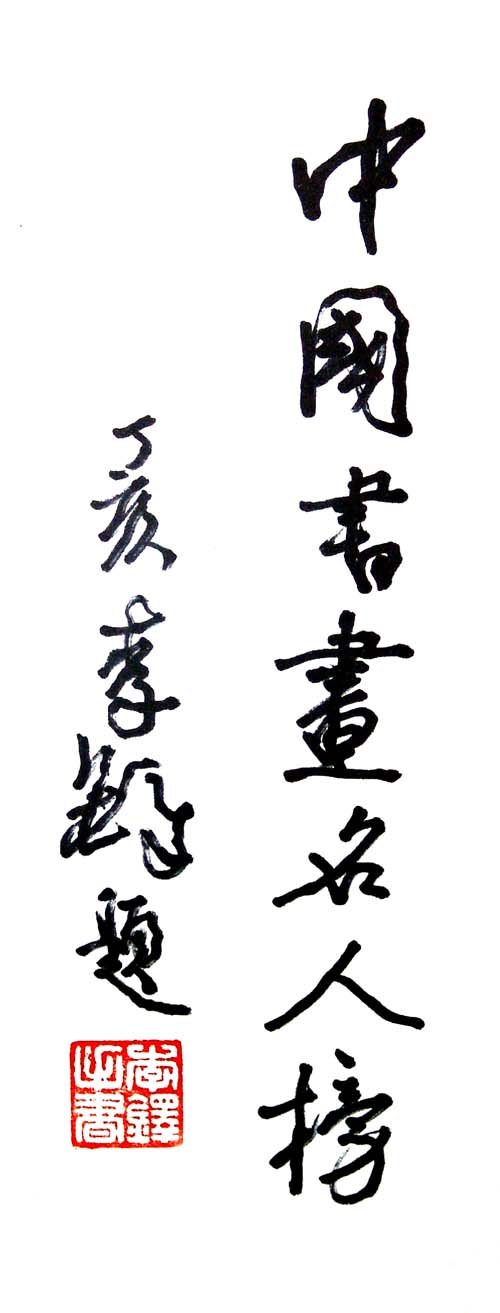 中國書畫名人榜
丁亥李鐸題
李鐸之書